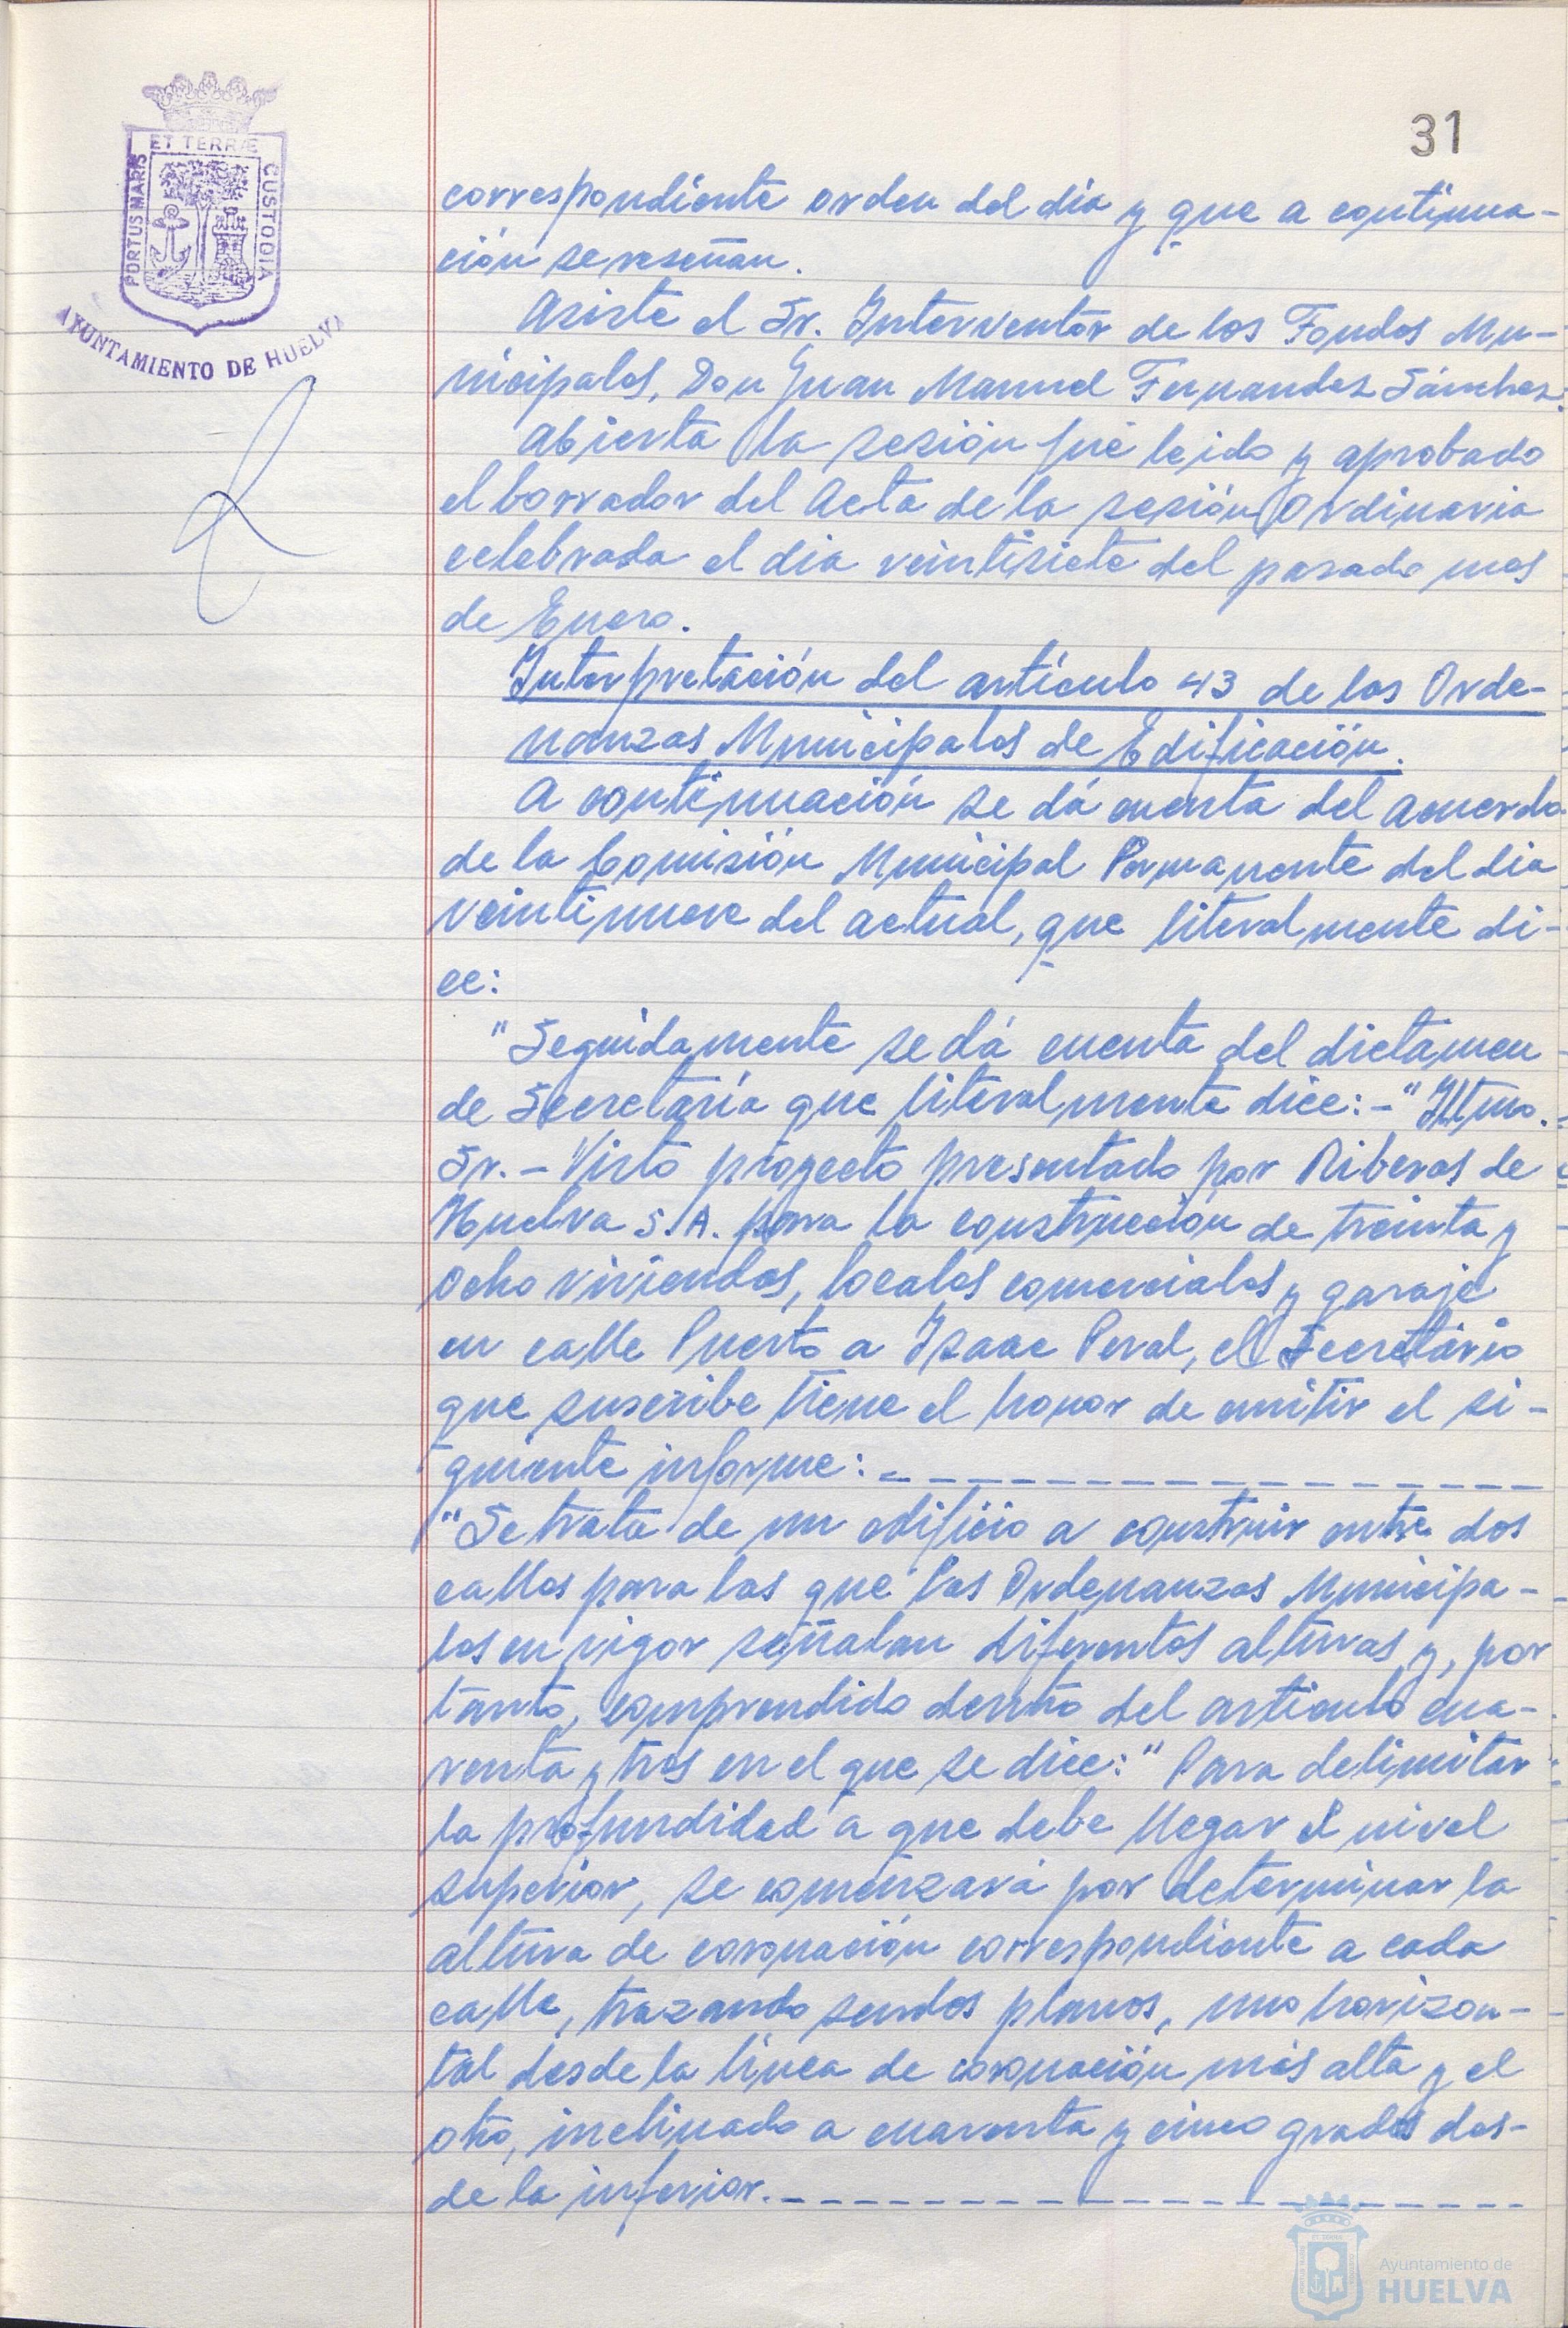 31
ET TERRÆ
PORTUS MARIS
CUSTODIA
AYUNTAMIENTO DE HUELVA
correspondiente orden del dia y que a continua-
ción se reseñan.
Asiste el Sr. Interventor de los Fondos Mu-
nicipales, Don Juan Manuel Fernandez Sánchez.
Abierta la sesión fué leido y aprobado
el borrador del Acta de la sesión Ordinaria
celebrada el dia veintisiete del pasado mes
de Enero.
Interpretación del artículo 43 de las Orde-
nanzas Municipales de Edificación.
A continuación se dá cuenta del acuerdo
de la Comisión Municipal Permanente del dia
veintinueve del actual, que literalmente di-
ce:
"Seguidamente se dá cuenta del dictamen
de Secretaría que literalmente dice:-"Iltmo.
Sr.- Visto proyecto presentado por Riberas de
Huelva S.A. para la construcción de treinta y
ocho viviendas, locales comerciales y garaje
en calle Puerto a Isaac Peral, el Secretario
que suscribe tiene el honor de emitir el si-
guiente informe:-
"Se trata de un edificio a construir entre dos
calles para las que las Ordenanzas Municipa-
les en vigor señalan diferentes alturas y, por
tanto, comprendido dentro del articulo cua-
renta y tres en el que se dice:" Para delimitar
la profundidad a que debe llegar el nivel
superior, se comenzará por determinar la
altura de coronación correspondiente a cada
calle, trazando sendos planos, uno horizon-
tal desde la línea de coronación más alta y el
otro, inclinado a cuarenta y cinco grados des-
de la inferior.-
Ayuntamiento de
HUELVA